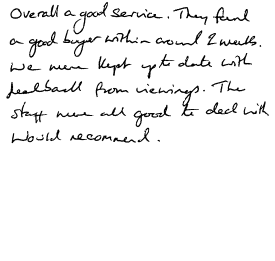 Overall a good service. They found
a good buyer within around 2 weeks.
We were kept up to date with
feedback from viewings. The
staff were all good to deal with
Would recommend.